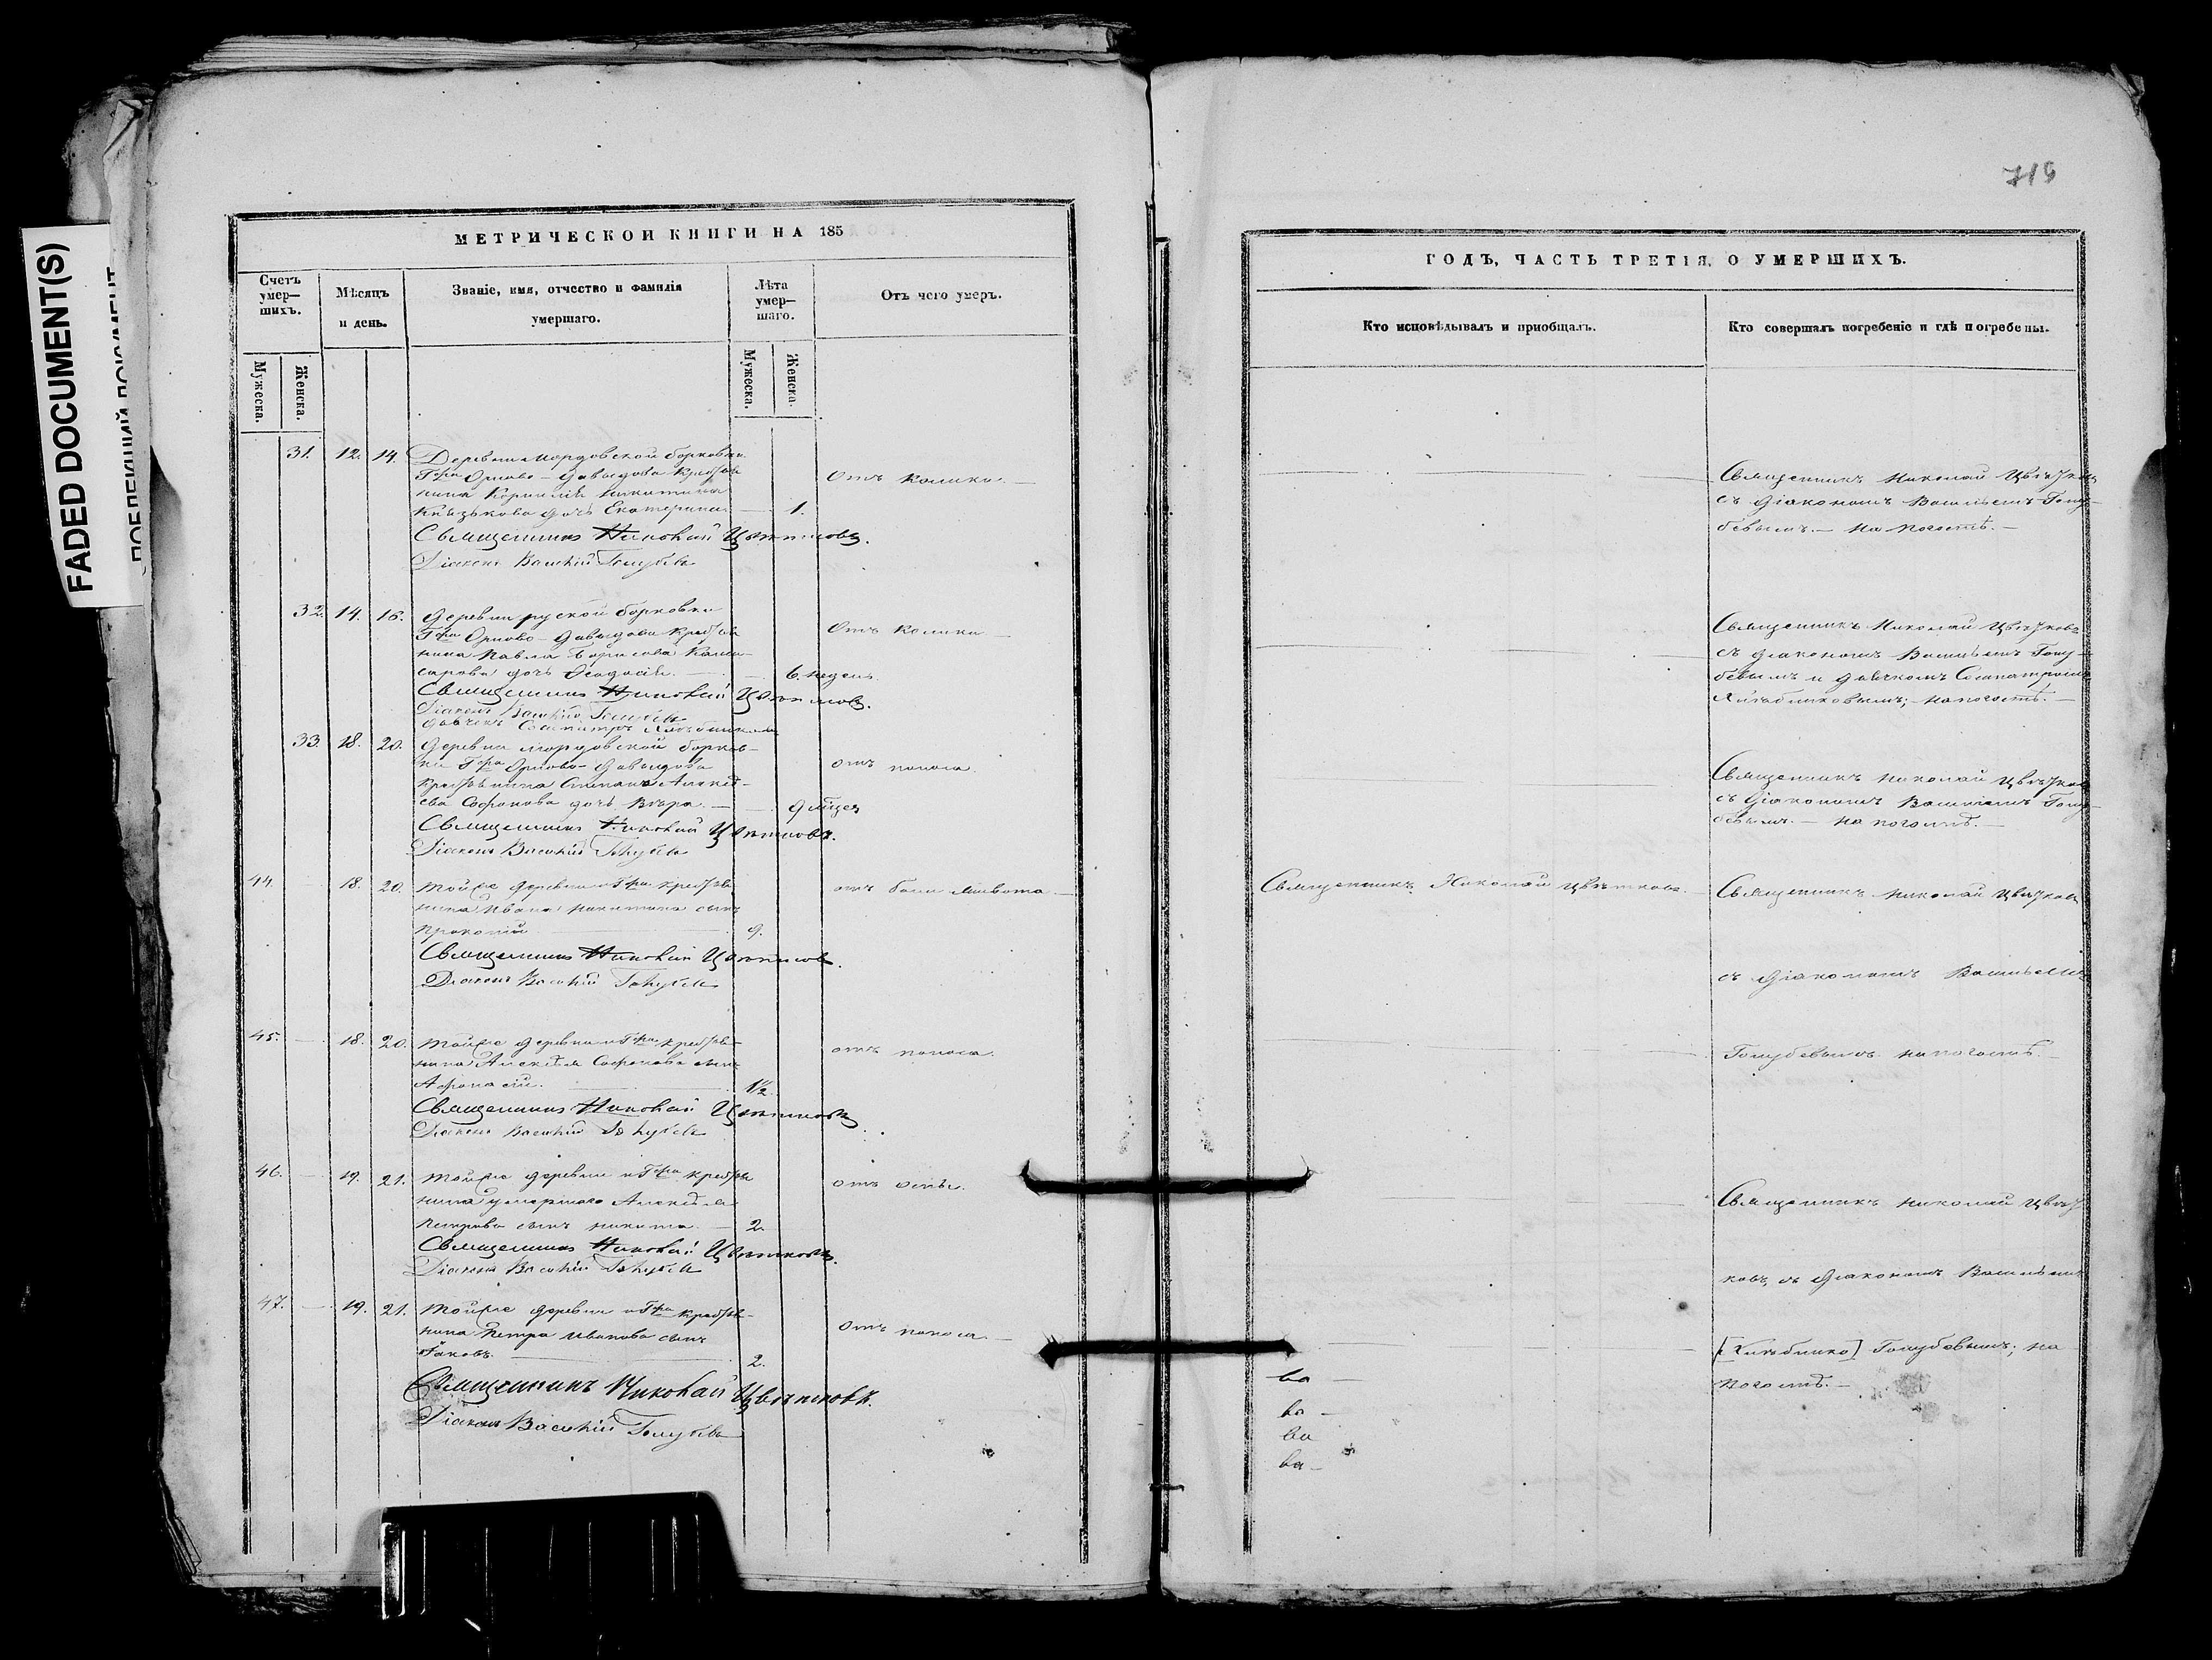 FADED DOCUMENT(S)
719
МЕТРИЧЕСКОЙ КНИГИ НА 185
Счетъ умер—шихъ.
Мѣсяцъ и день.
Званіе, имя, отчество и фамилія умершаго.
Лѣта умер—шаго.
Отъ чего умеръ.
Мужеска.
Женска.
Мужеска.
Женска.
31. 12. 14. Деревни Мордовской борковки
Гфа Орлово-Давыдова кресть
нина Корнилія Никитина
Князькова дочь Екатерина — 1.
Отъ колики. —
Священникъ Николай Цвѣтковъ.
Діаконъ Василій Голубевъ
32. 14. 16. Деревни руской борковки
Гфа Орлово-Давыдова кресть
нина Павла Борисова
дочь Ѳеодосія. — 6. недель
Отъ колики —
Священникъ Николай Цвѣтковъ.
Діаконъ Василій Голубевъ
дьячекъ Сосипатръ Хлѣбниковъ
33. 18. 20. Деревни мордовской борков-
ки Гфа Орлово-Давыдова
крестьянина Степана Алексѣ-
ева Софонова дочь Вѣра. — 9 мѣсец
отъ поноса.
Священникъ Николай Цвѣтковъ.
Діаконъ Василій Голубевъ
44. — 18. 20. Тойже деревни и Гфа крестья
нина Ивана Никитина сынъ
Прокопій — 9.
отъ боли живота. —
Священникъ Николай Цвѣтковъ.
Діаконъ Василій Голубевъ
45. — 18. 20. Тойже деревни и Гфа крестья-
нина Алексѣя Софонова сынъ
Афонасій. — 1½
отъ поноса.
Священникъ Николай Цвѣтковъ
Діаконъ Василій Голубевъ
46. — 19. 21. Тойже деревни и Гфа крестья
нина умершаго Алексѣя
Петрова сынъ Никита. — 2.
отъ оспы.
Священникъ Николай Цвѣтковъ.
Діаконъ Василій Голубевъ
47. — 19. 21. Тойже деревни и Гфа крестья-
нина Петра Иванова сынъ
Іаковъ. — 2.
Отъ поноса. —
Священникъ Николай Цвѣтковъ.
Діаконъ Василій Голубевъ
ГОДЪ, ЧАСТЬ ТРЕТІЯ, О УМЕРШИХЪ.
Кто исповѣдывалъ и приобщалъ.
Кто совершалъ погребеніе и гдѣ погребены.
Священникъ Николай Цвѣтковъ
съ Діакономъ Васильемъ Голу-
бевымъ. — На погостѣ. —
Священникъ Николай Цвѣтковъ
съ діакономъ Васильемъ Голу-
бевымъ и дьячкомъ Сосипатромъ
Хлѣбниковымъ; на погостѣ. —
Священникъ Николай Цвѣтковъ
съ Діакономъ Васильемъ Голу-
бевымъ. — на погостѣ. —
Священникъ Николай Цвѣтковъ. —
Священникъ Николай Цвѣтковъ
съ Діакономъ Васильемъ
Голубевымъ на погостѣ. —
Священникъ Николай Цвѣт
ковъ, съ Діакономъ Васильемъ
[Хлѣбнико] Голубевымъ; на
погостѣ. —
ва —
ва —
ва
ва —